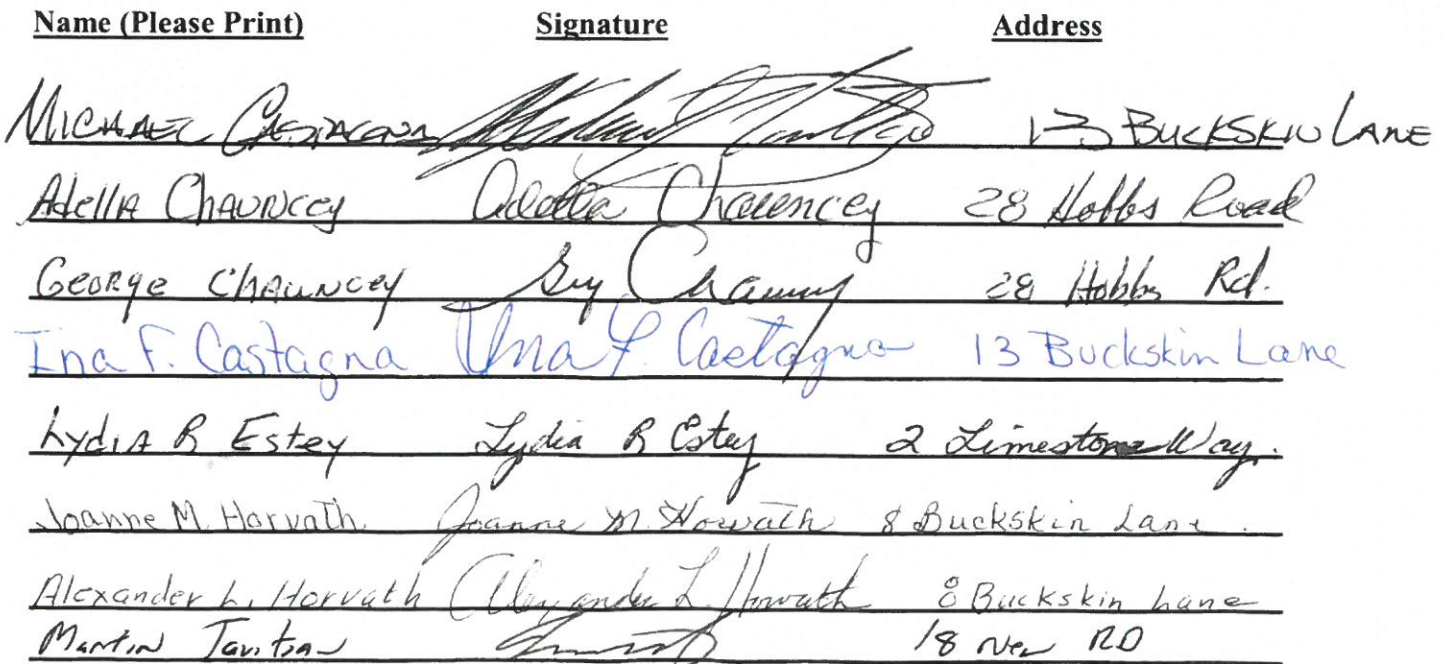 Name (Please Print) Signature Address
MICHAEL CASTAGNA 13 BUCKSKIN LANE
Adella Chauncey Adella Chauncey 28 Hobbs Road
George Chauncey Chauncey 28 Hobbs Rd.
Ina F. Castagna Ina F. Castagna 13 Buckskin Lane
Lydia R Estey Lydia R Estey 2 Limestone Way.
Joanne M. Horvath. Joanne M. Horvath 8 Buckskin Lane.
Alexander L. Horvath Alexander L. Horvath 8 Buckskin Lane
Martin Tavitian 18 New RD